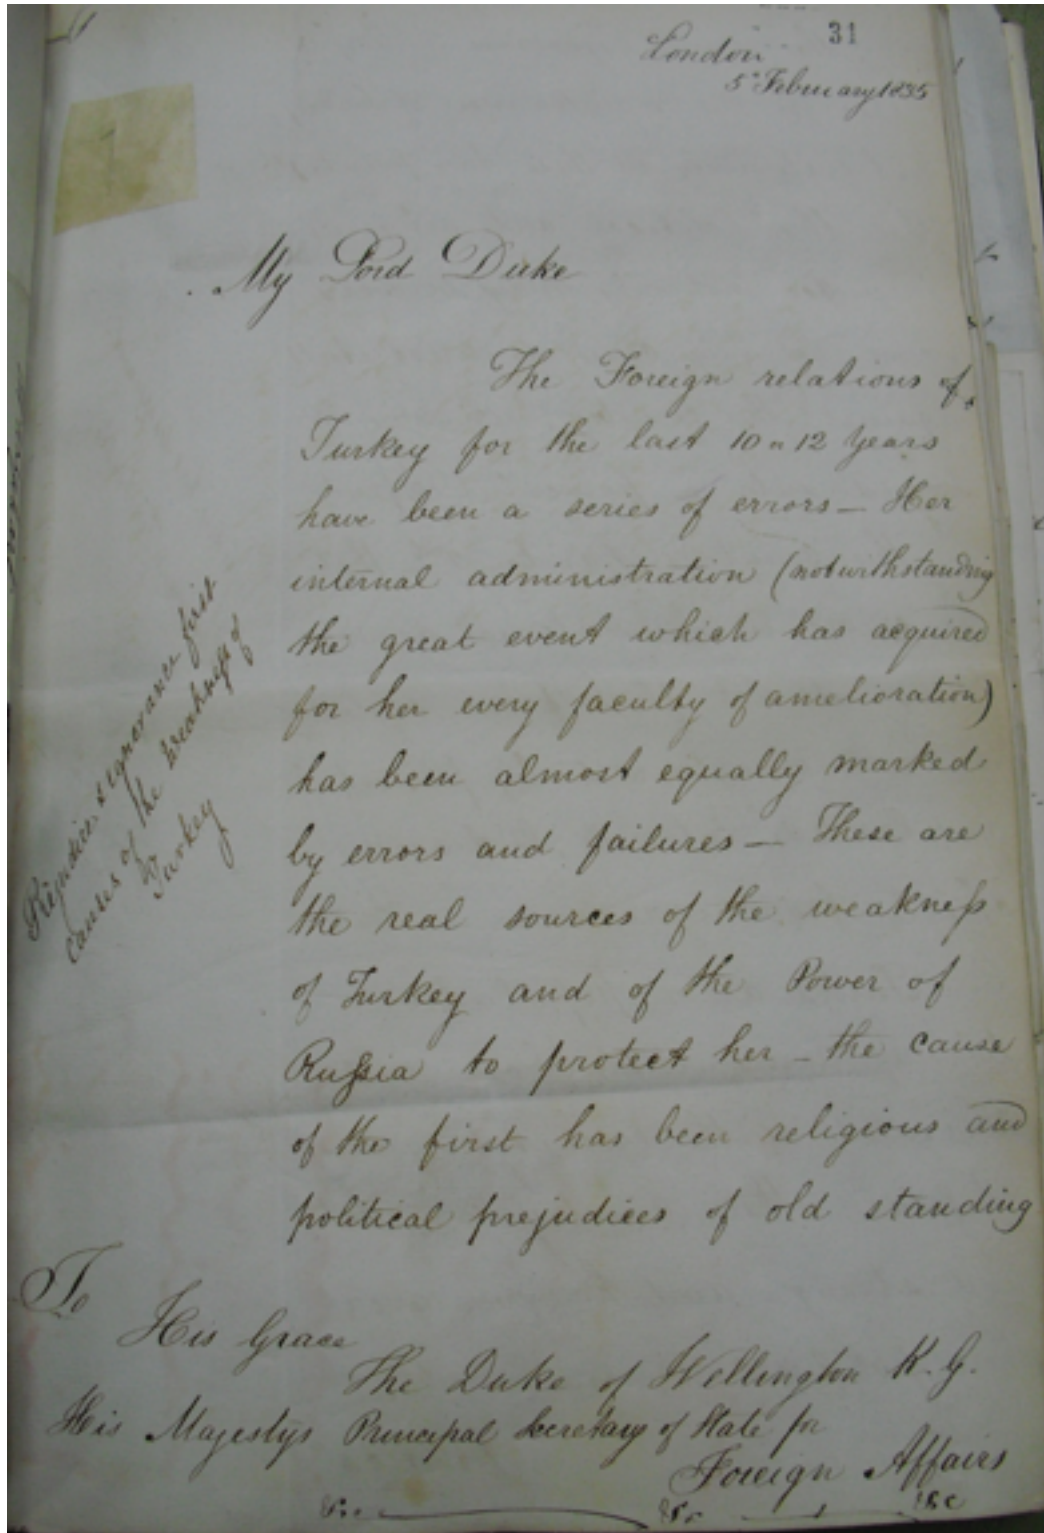 31
London
5th February 1835
My Lord Duke
The Foreign relations of
Turkey for the last 10 or 12 years
have been a series of errors — Her
internal administration (notwithstanding
the great event which has acquired
for her every faculty of amelioration)
has been almost equally marked
by errors and failures — These are
the real sources of the weakness
of Turkey and of the Power of
Russia to protect her — the cause
of the first has been religious and
political prejudices of old standing
Prejudices & ignorance first
causes of the weakness of
Turkey
To
His Grace
The Duke of Wellington K.G.
His Majestys Principal Secretary of State for
Foreign Affairs
&c &c &c